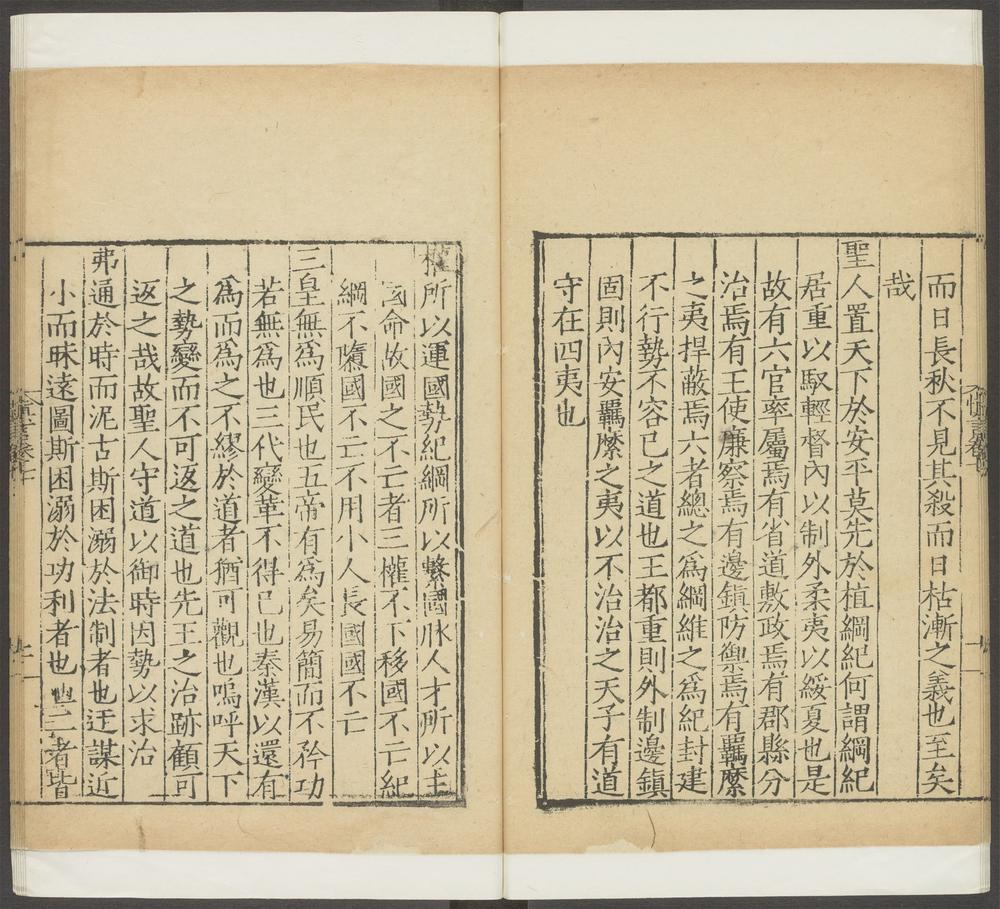 而日長秋不見其殺而日枯漸之義也至矣
哉
聖人置天下於安平莫先於植綱紀何謂綱紀
居重以馭輕督內以制外柔夷以綏夏也是
故有六官率屬焉有省道敷政焉有郡縣分
治焉有王使廉察焉有邊鎮防禦焉有羈縻
之夷捍蔽焉六者總之爲綱維之爲紀封建
不行勢不容已之道也王都重則外制邊鎮
固則內安羈縻之夷以不治治之天子有道
守在四夷也
權所以運國勢紀綱所以繫國脉人才所以主
國命故國之不亡者三權不下移國不亡紀
綱不隳國不亡不用小人長國國不亡
三皇無爲順民也五帝有爲矣易簡而不矜功
若無爲也三代變革不得已也秦漢以還有
爲而爲之不繆於道者猶可觀也嗚呼天下
之勢變而不可返之道也先王之治跡顧可
返之哉故聖人守道以御時因勢以求治
弗通於時而泥古斯困溺於法制者也迂謀近
小而昧遠圖斯困溺於功利者也二者皆